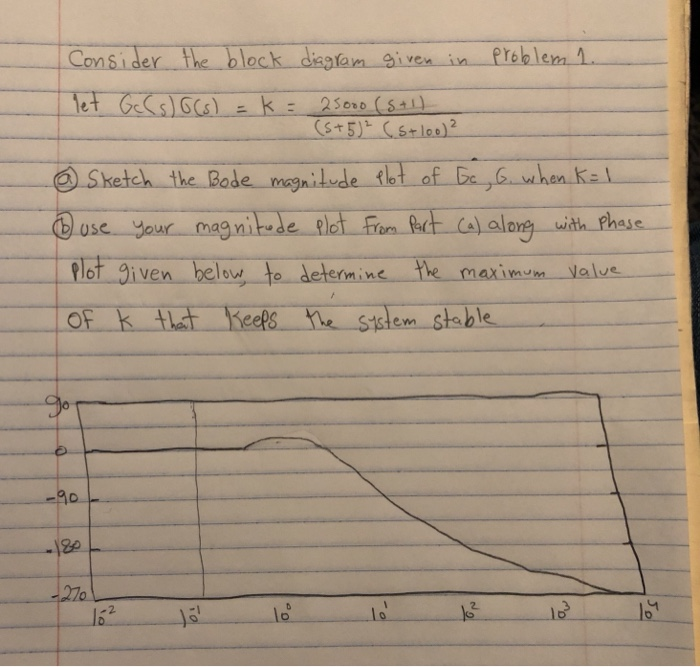 Consider the block diagram given in problem 1.
let Gc(s)G(s) = K = 25000 (s+1)
(s+5)² (s+100)²
(a) Sketch the Bode magnitude plot of Gc, G. when K=1
(b) use your magnitude plot From Part (a) along with Phase
Plot given below, to determine the maximum value
OF K that Keeps the system stable
90
0
-90
-180
-270
10⁻² 10⁻¹ 10⁰ 10¹ 10² 10³ 10⁴